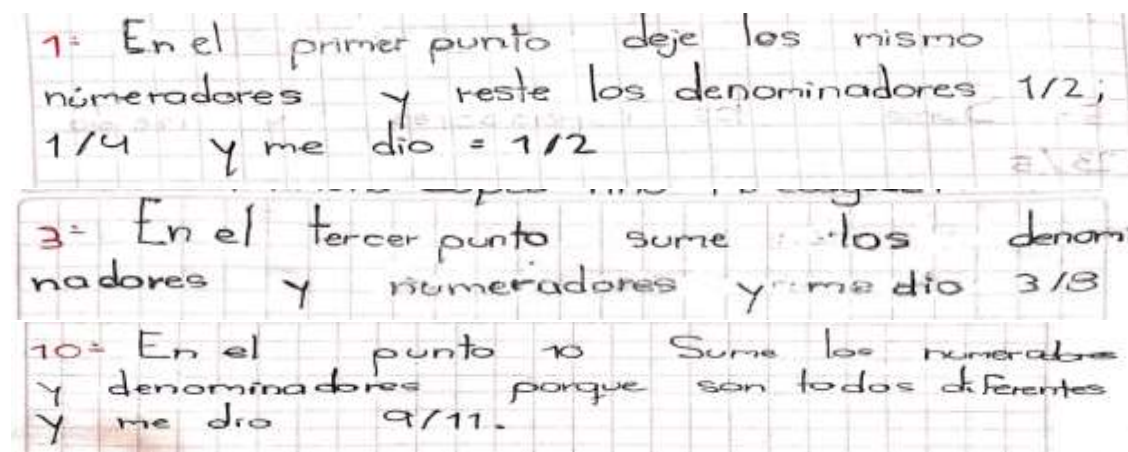 1= En el primer punto deje los mismo
númeradores y reste los denominadores 1/2;
1/4 y me dio = 1/2
3= En el tercer punto sume los denomi
nadores y númeradores y me dio 3/8
10= En el punto 10 Sume los numeradores
y denominadores porque son todos diferentes
y me dio 9/11.